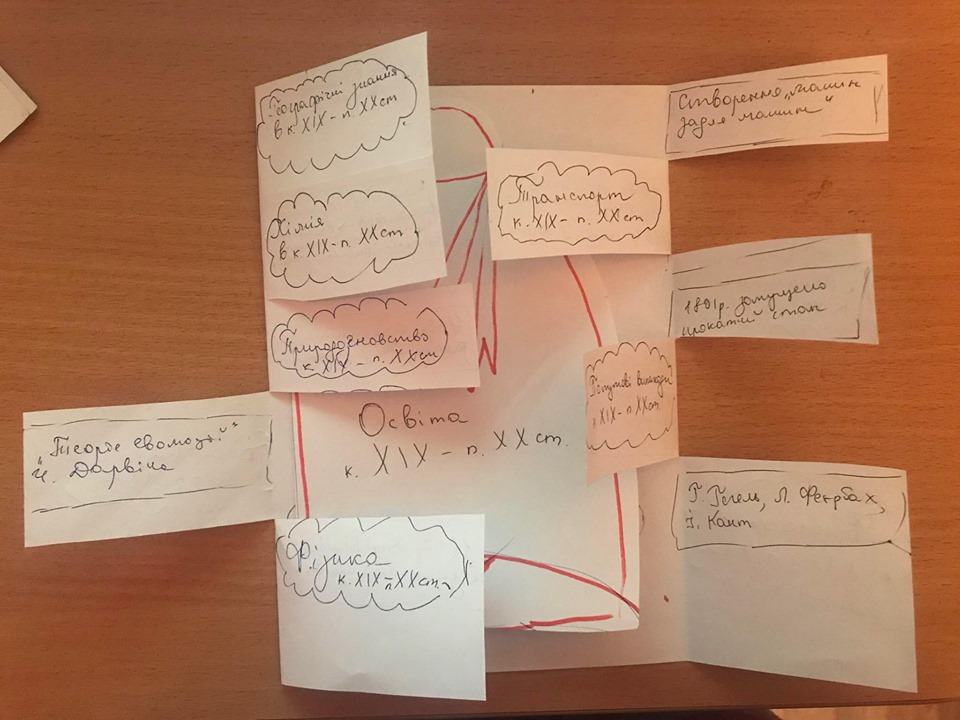 Географічні знання
в к. XIX - п. XX ст
Хімія
в к. XIX - п. XX ст
Природознавство
к. XIX - п. XX ст
"Теорія еволюції"
Ч. Дарвіна
Фізика
к. XIX - п. XX ст.
Освіта
к. XIX - п. XX ст.
Створення "машин
задля машин"
Транспорт
к. XIX - п. XX ст
1891р. запущено
прокатний стан
Побутові винаходи
к. XIX - п. XX ст.
Г. Гегель, Л. Феєрбах,
І. Кант